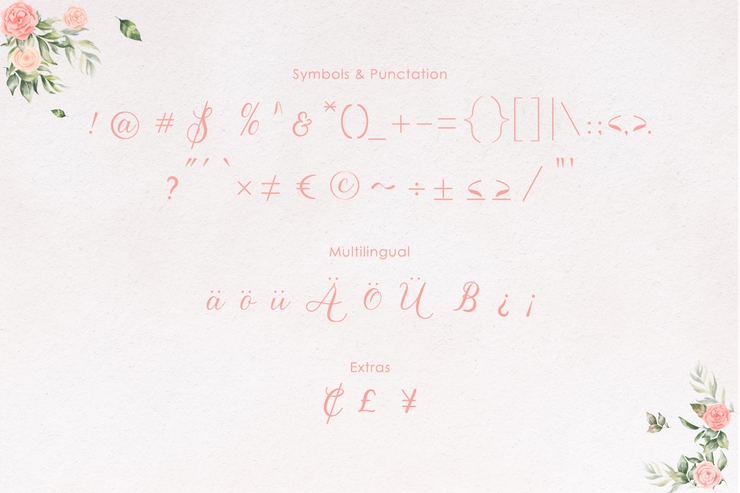 Symbols & Punctation
! @ # $ % ^ & * ( ) _ + − = { } [ ] | \ : ; < , > .
? " ' ` × ≠ € © ~ ÷ ± ≤ ≥ / " '
Multilingual
ä ö ü Ä Ö Ü ß ¿ ¡
Extras
₵ £ ¥